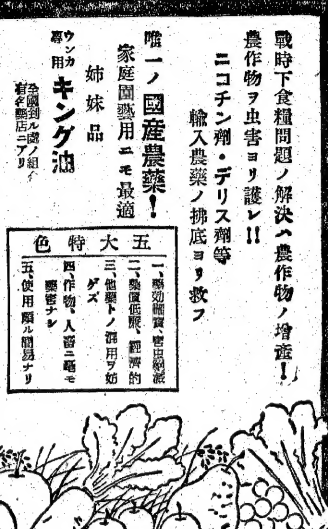 戰時下食糧問題ノ解決ハ農作物ノ增産!
農作物ヲ虫害ヨリ護レ!!
ニコチン劑・デリス劑等
輸入農藥ノ拂底ヨリ救フ
唯一ノ國産農藥!
家庭園藝用ニモ最適
姉妹品
ウンカ專用キング油
全國到ル處ノ組合
有名藥店ニアリ
五大特色
一、藥効確實、害虫絶滅
二、藥價低廉、經濟的
三、他藥トノ混用ヲ妨
ゲズ
四、作物、人畜ニ毫モ
藥害ナシ
五、使用頗ル簡易ナリ